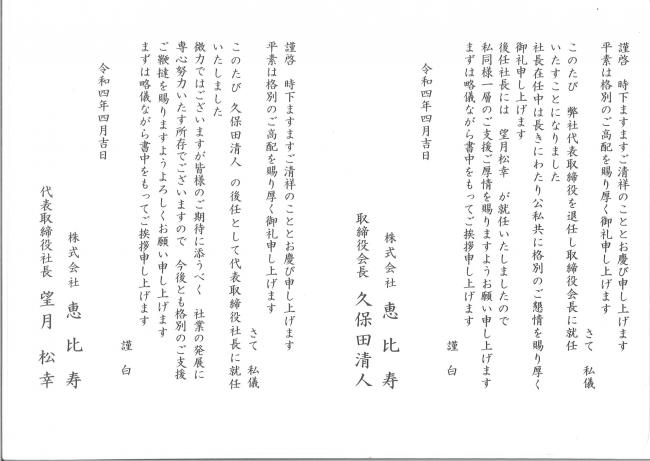 謹啓　時下ますますご清祥のこととお慶び申し上げます
平素は格別のご高配を賜り厚く御礼申し上げます
さて　私儀
このたび　弊社代表取締役を退任し取締役会長に就任
いたすことになりました
社長在任中は長きにわたり公私共に格別のご懇情を賜り厚く
御礼申し上げます
後任社長には　望月松幸　が就任いたしましたので
私同様一層のご支援ご厚情を賜りますようお願い申し上げます
まずは略儀ながら書中をもってご挨拶申し上げます
謹　白
令和四年四月吉日
株式会社　恵　比　寿
取締役会長　久保田清人
謹啓　時下ますますご清祥のこととお慶び申し上げます
平素は格別のご高配を賜り厚く御礼申し上げます
さて　私儀
このたび　久保田清人　の後任として代表取締役社長に就任
いたしました
微力ではございますが皆様のご期待に添うべく　社業の発展に
専心努力いたす所存でございますので　今後とも格別のご支援
ご鞭撻を賜りますようよろしくお願い申し上げます
まずは略儀ながら書中をもってご挨拶申し上げます
謹　白
令和四年四月吉日
株式会社　恵　比　寿
代表取締役社長　望　月　松　幸